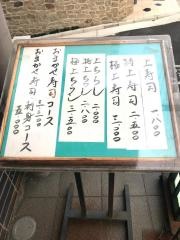 上寿司 一八〇〇
特上寿司 二五〇〇
極上寿司 三二〇〇
上ちらし 二一〇〇
特上ちらし 二八〇〇
極上ちらし 三五〇〇
おまかせ寿司コース 三八〇〇
おまかせ寿司 刺身コース 五八〇〇